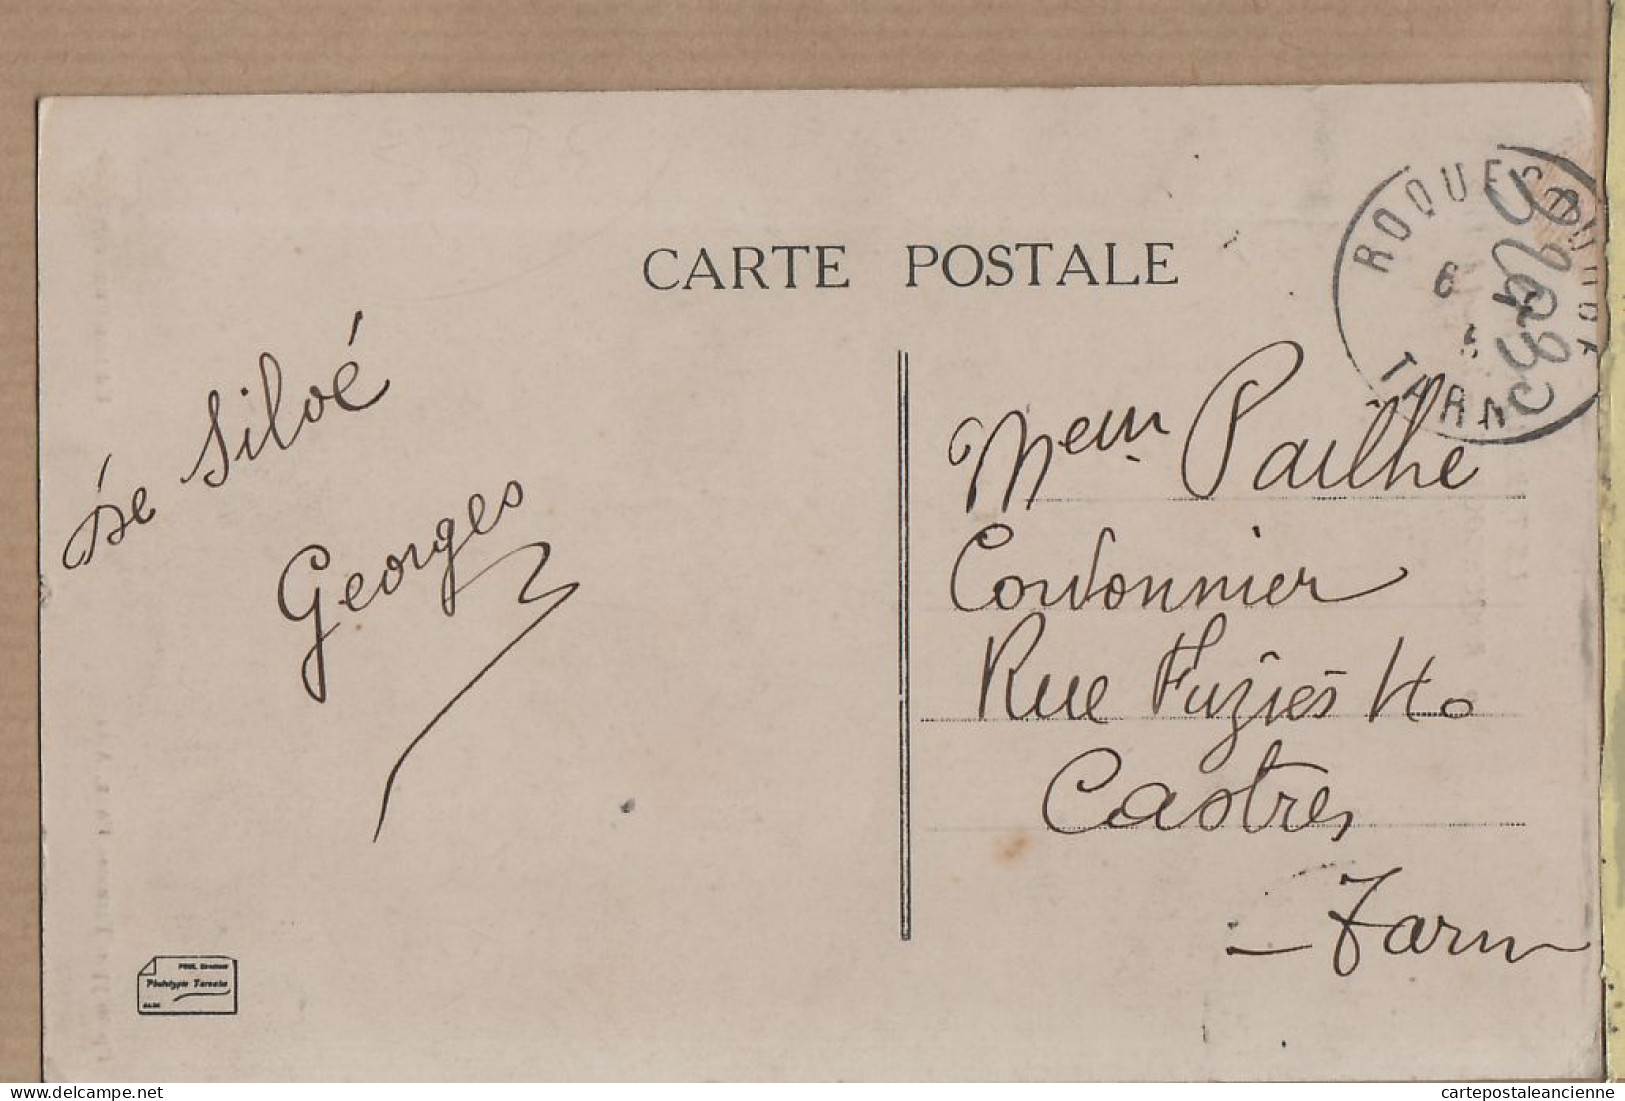 CARTE POSTALE
ROQUECOURBE
6
TARN
De Siloé
Georges
Mem Pailhe
Cordonnier
Rue Fuziès 40
Castres
— Tarn
Phototypie Tarnaise
delcampe.net
cartepostaleancienne